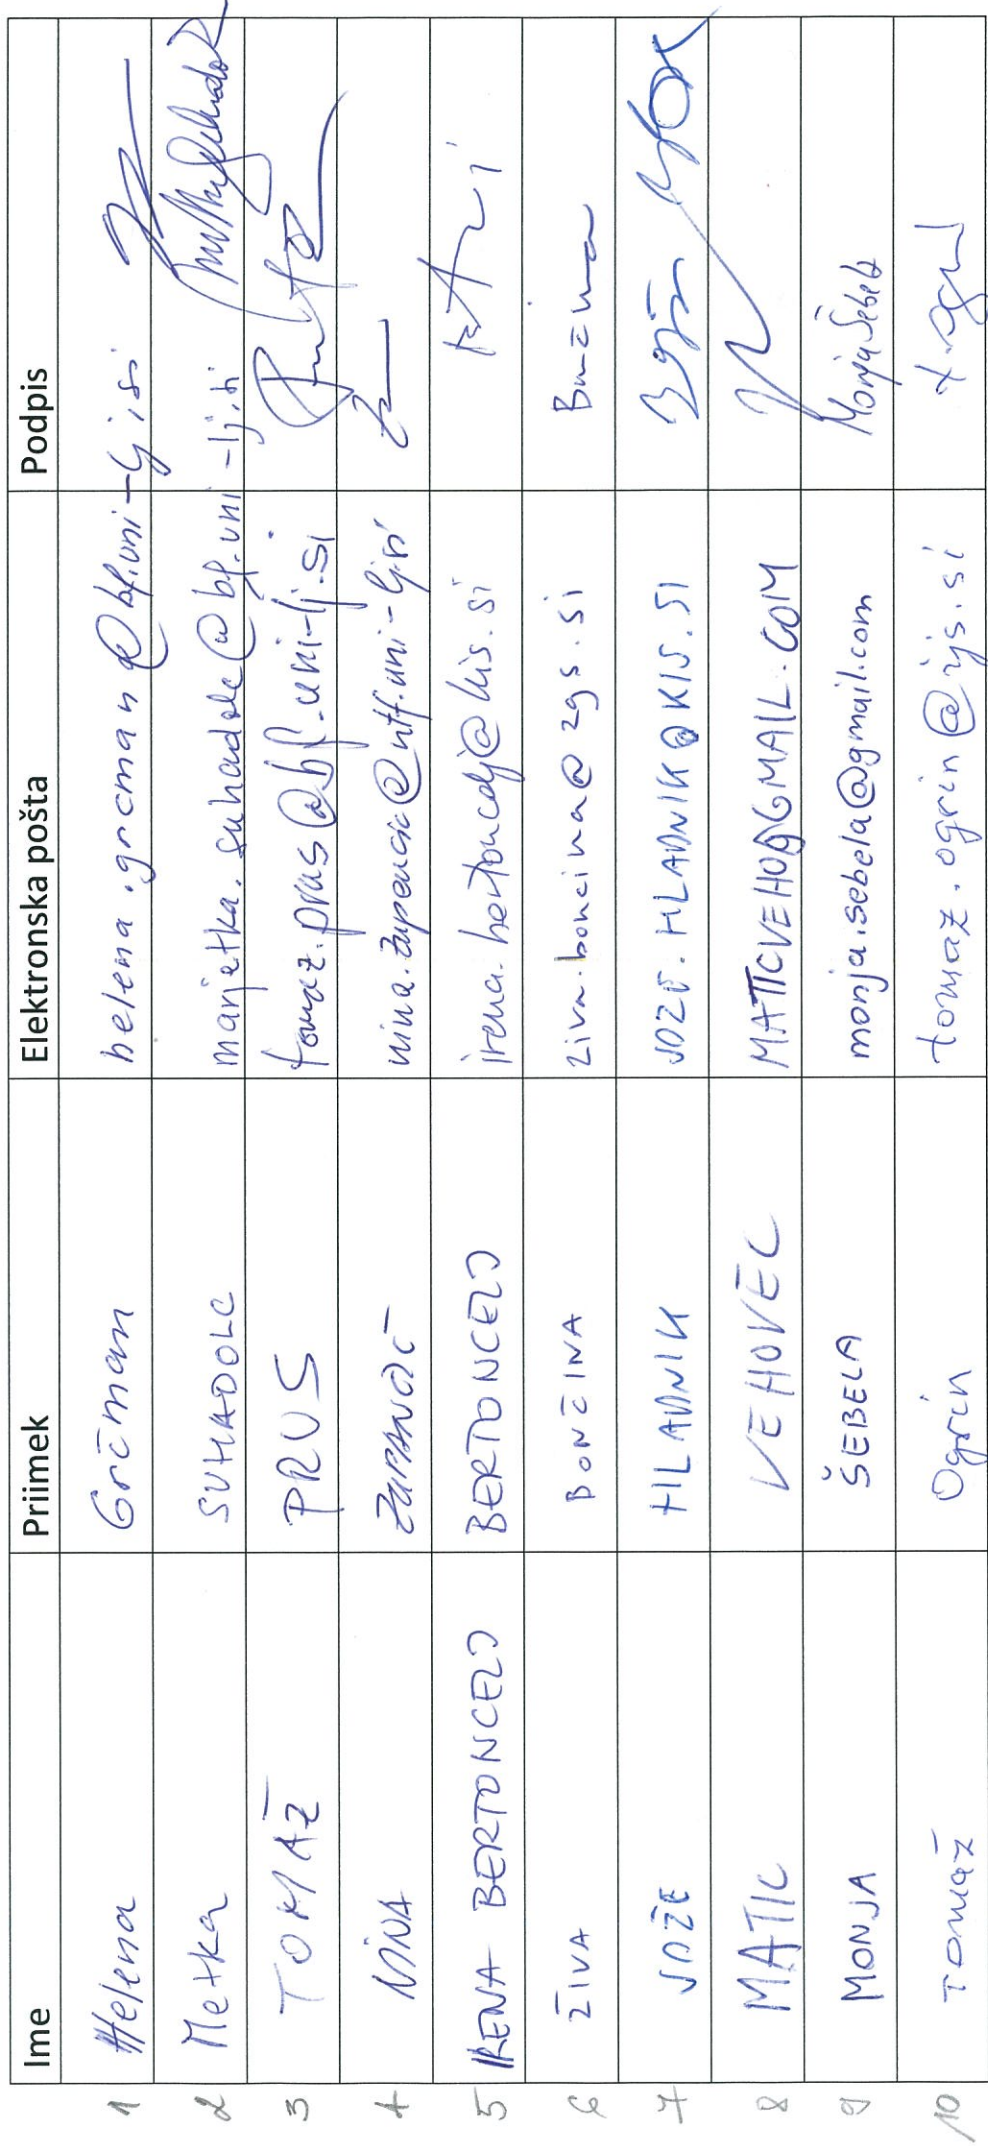 Ime Priimek Elektronska pošta Podpis
1 Helena Grčman helena.grcman@bf.uni-lj.si
2 Metka SUHADOLC marjetka.suhadolc@bf.uni-lj.si
3 TOMAŽ PRUS tomaz.prus@bf.uni-lj.si
4 NINA ZUPANČIČ nina.zupancic@ntf.uni-lj.si
5 IRENA BERTONCELJ BERTONCELJ irena.bertoncelj@kis.si
6 ŽIVA BONČINA ziva.boncina@zgs.si Bončina
7 JOŽE HLADNIK JOZE.HLADNIK@KIS.SI
8 MATIC VEHOVEC MATICVEHO@GMAIL.COM
9 MONJA ŠEBELA monja.sebela@gmail.com Monja Šebela
10 TOMAŽ Ogrin tomaz.ogrin@ijs.si